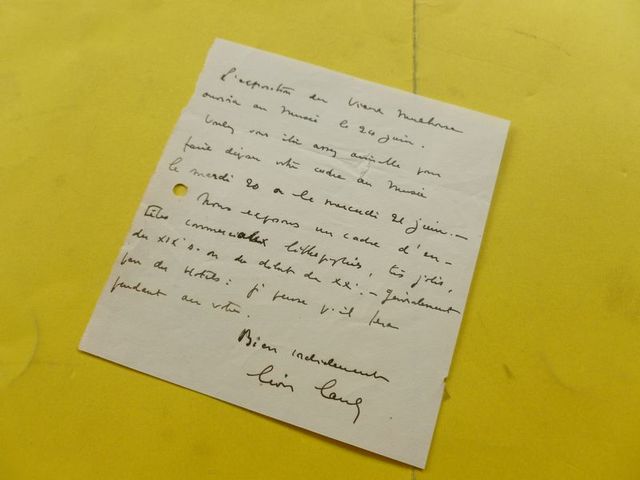 L'exposition du Vieux Mulhouse
ouvrira au Musée le 24 juin.
Voulez vous être assez aimable pour
faire déposer votre cadre au Musée
le mardi 20 ou le mercredi 21 juin. –
Nous exposons un cadre d'en-
têtes commerciales lithographiés, très jolis,
du XIXe s. ou du début du XXe. – Généralement
des Hotels : je pense qu'il fera
pendant au votre.
Bien cordialement
Léon Lang